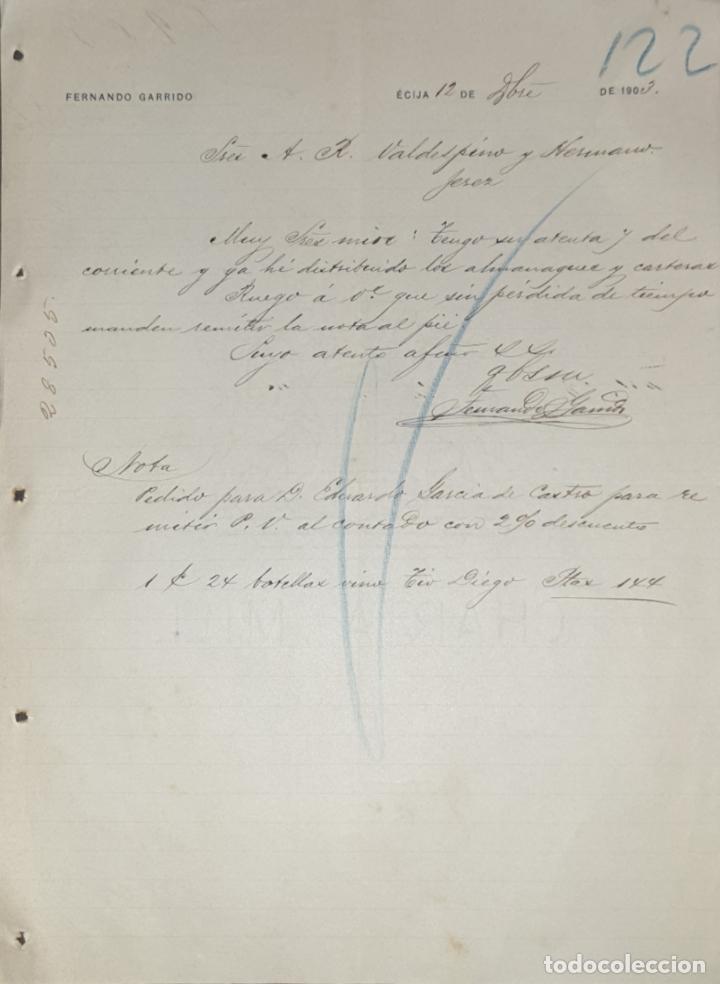 122
FERNANDO GARRIDO
ÉCIJA 12 DE Dbre DE 1903.
Sres A. R. Valdespino y Hermano.
Jerez
Muy Sres mios: Tengo su atenta 7 del
corriente y ya hé distribuido los almanaques y carteras
Ruego á Vs. que sin pérdida de tiempo
manden remitir la nota al pié
Suyo atento afmo S S
q b s m.
Fernando Garrido
28505.
Nota
Pedido para D. Eduardo Garcia de Castro para re
mitir P. V. al contado con 2% descuento
1 c 24 botellas vino Tio Diego Ptas 144
todocoleccion.net